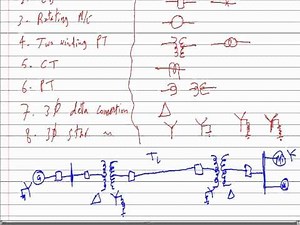 3. Rotating M/C
4. Two winding PT
5. CT
6. PT
7. 3Ø delta connection
8. 3Ø star
T₁
G
M
K